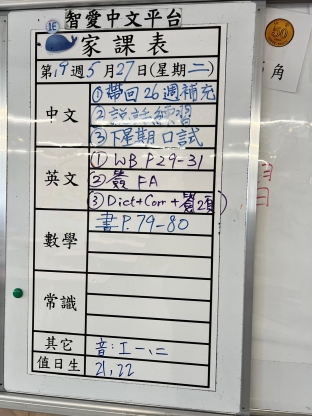 1E
智愛中文平台
家課表
第19週5月27日(星期二)
中文
①帶回26週補充
②說話練習
③下星期口試
英文
① WB P29-31
② 簽 FA
③ Dict+Corr+簽2頁)
數學
書P.79-80
常識
其它
音:工一,二
值日生
21,22
50
角